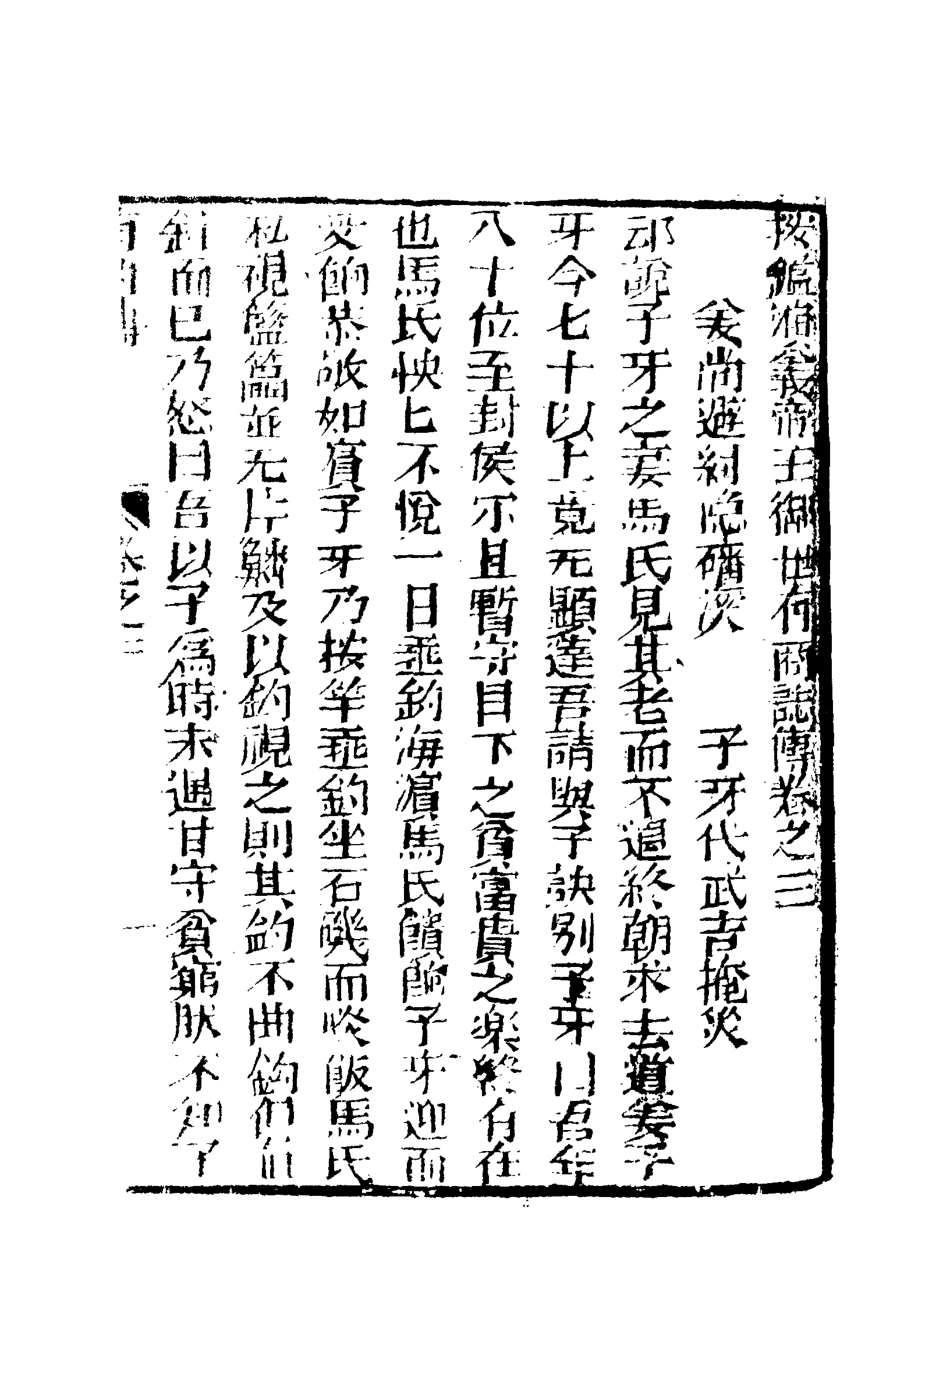 按鑑演義帝王御世有商誌傳卷之三
姜尚避紂隐磻溪　子牙代武吉掩災
却說子牙之妻馬氏見其老而不遇終朝求去道姜子
牙今七十以上竟无顯達吾請與子訣別子牙曰君年
八十位至封侯尔且暫守目下之貧富貴之楽終有在
也馬氏怏匕不悅一日垂釣海濵馬氏饋餉子牙迎而
受餉恭敬如賔子牙乃按竿垂釣坐石磯而飯馬氏
私視盤篮並无片鱗及以釣視之則其釣不曲鈎們值
針而已乃怒曰吾以子爲時未遇甘守貧窮朕不知子
卷之三